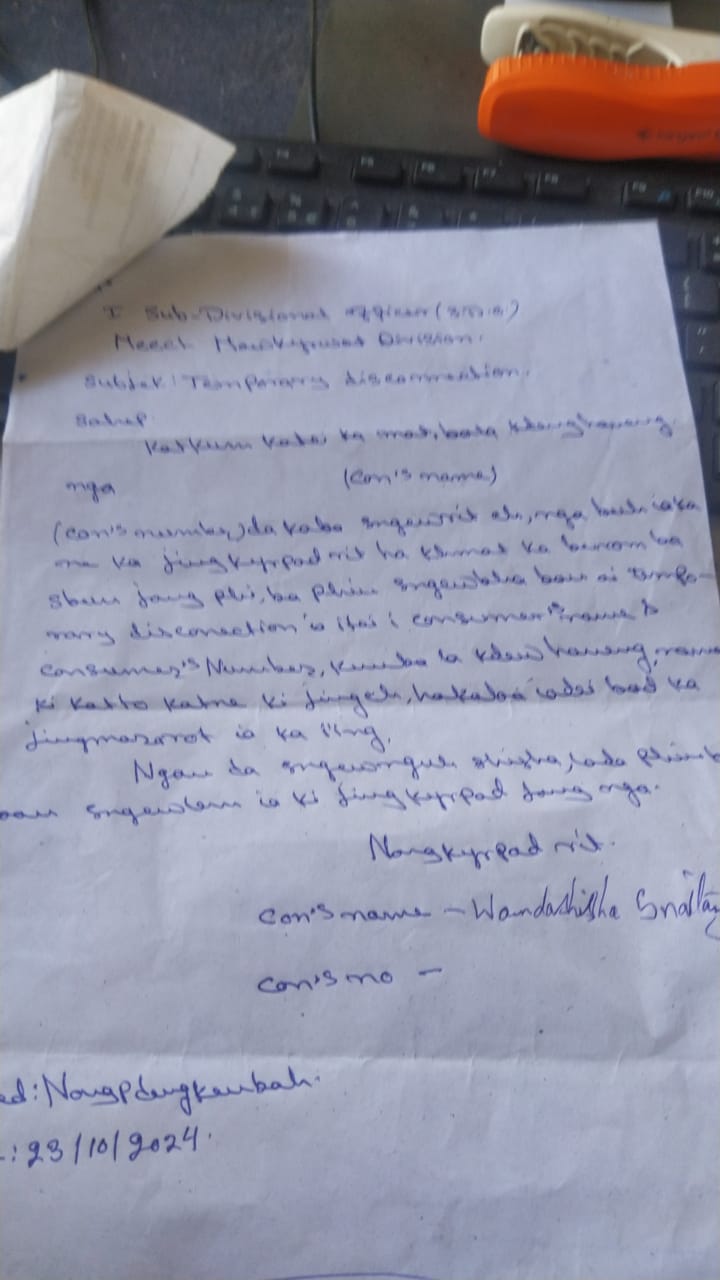 I Sub-Divisional officer (
Meecl Mawkyrwat Division.
Subject: Temporary disconnection.
Sahep
Katkum katei ka mat, bala kdew haneng
nga (con's name)
(con's number) da kaba sngewrit eh, nga buh ia ka
ne ka jingkyrpad rit ha khmat ka burom ba
sbun jong phi, ba phin sngewbha ban ai tempo-
rary disconection ia i consumer's name &
consumer's Number, kumba la kdew haneng, namar
ki katto katne ki jingeh, hakaba iadei bad ka
jingmaramot ia ka iing.
Ngan da sngewnguh shisha, lada phin
ban sngewlem ia ki jingkyrpad jong nga.
Nongkyrpad rit.
con's name - Wandashisha Snaitang
con's no -
ed: Nongpdengkenbah.
: 23/10/2024.
F5 F6 F7 F8 F9 F10